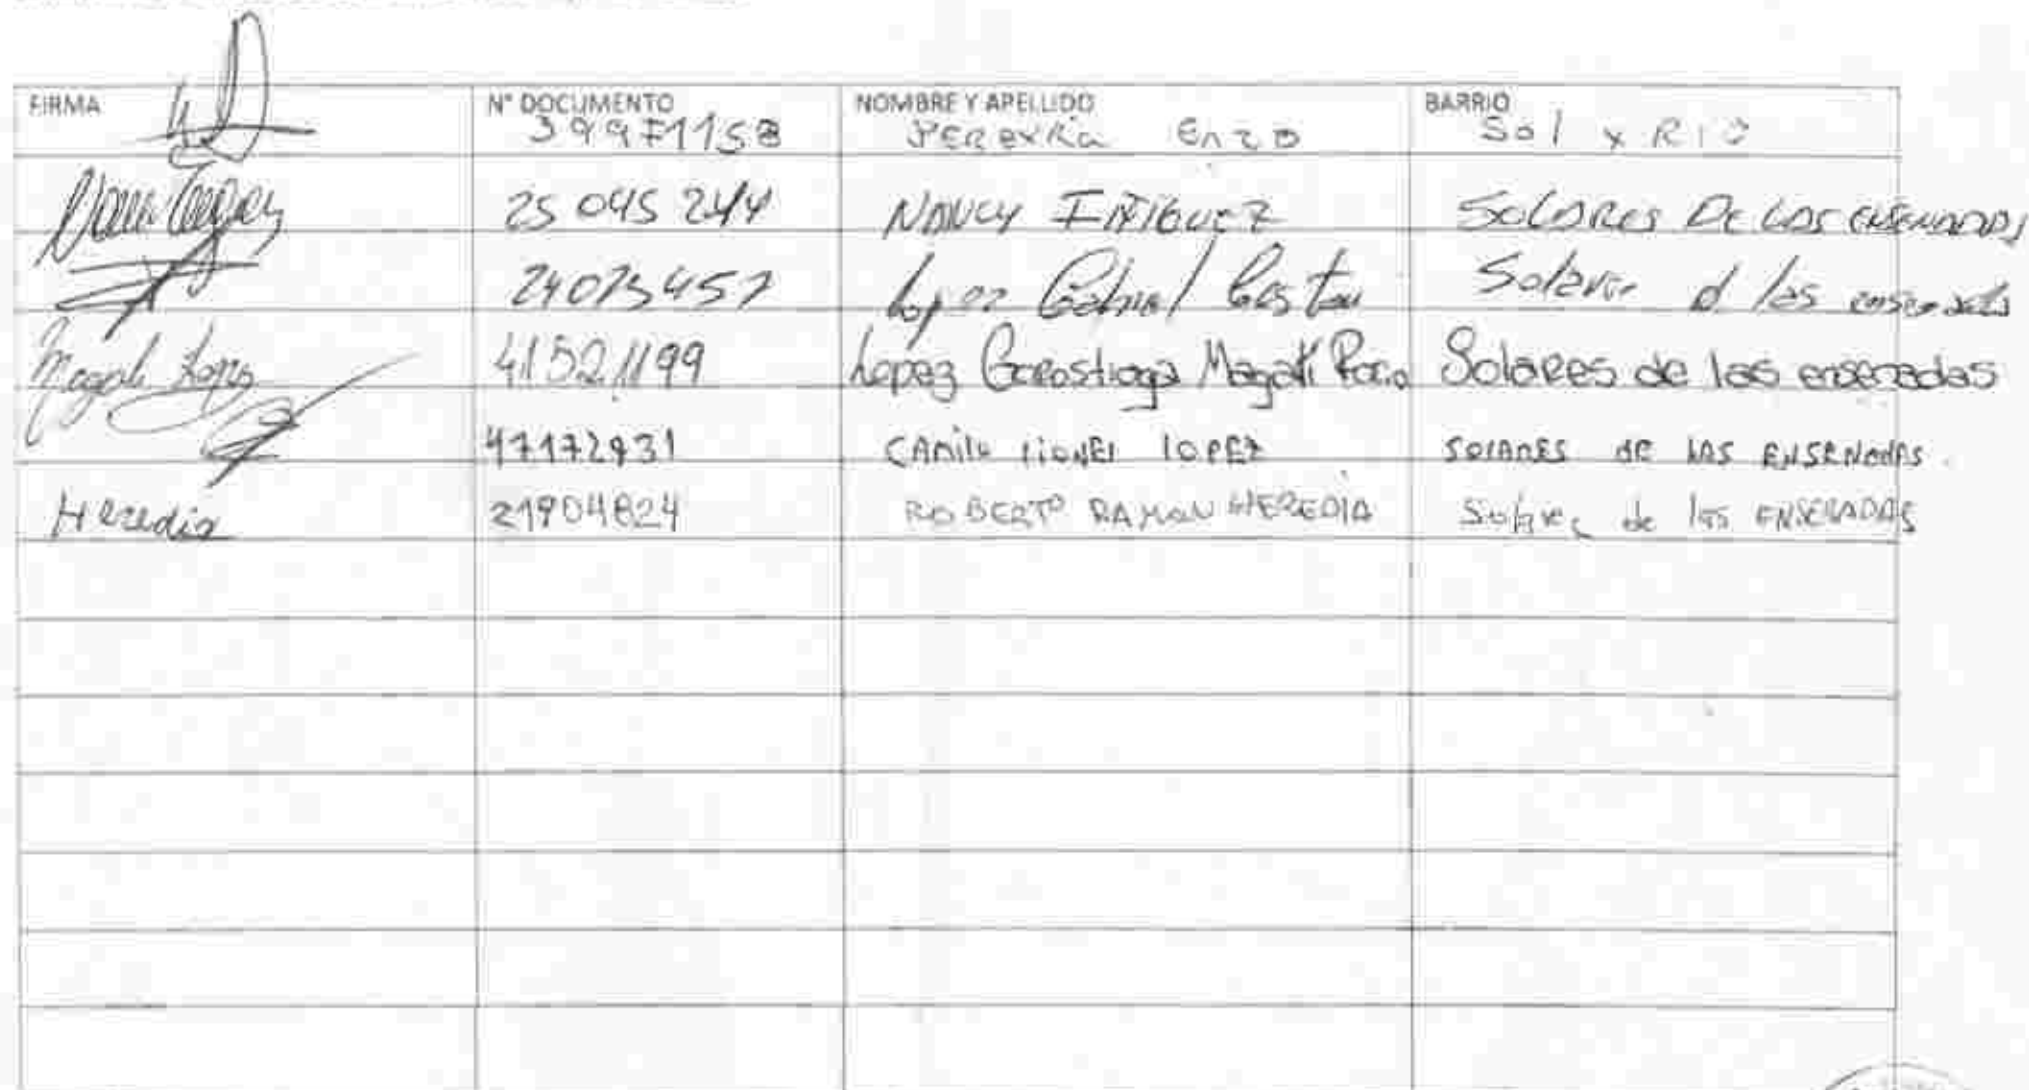 FIRMA N° DOCUMENTO NOMBRE Y APELLIDO BARRIO
39971158 PEREYRA Enzo Sol y RIO
25 045 244 NANCY IÑIGUEZ SOLARES DE LAS ENSENADAS
Lopez Gabriel Solares d las ensenadas
Magali Lopez 41521199 Lopez Gorostiaga Magalí Solares de las ensenadas
47172931 CAMilo lioNEl lOPEZ SOlARES dE LAS ENSENAdAS.
Heredia 21904824 ROBERTO RAMON HEREDIA Solares de las ENSENADAS